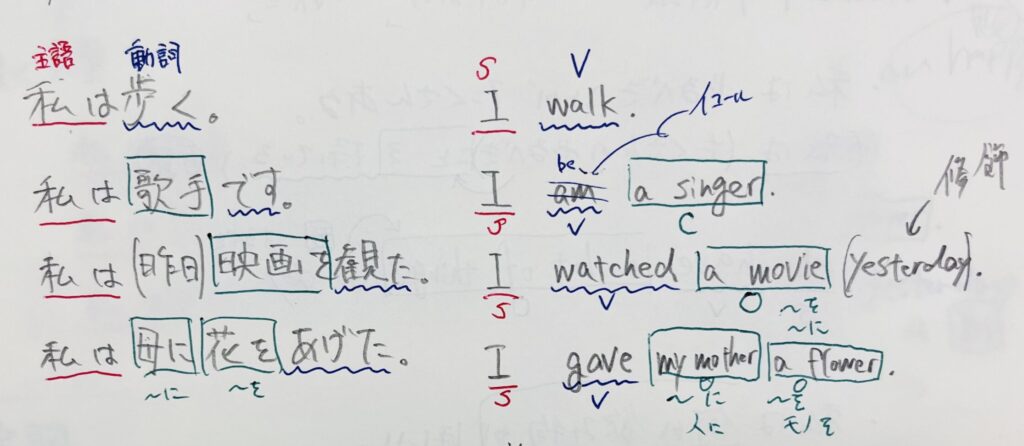 主語 動詞
私は歩く。
S V
I walk.
イコール
私は歌手です。
be
I am a singer.
S V C
修飾
私は(昨日)映画を観た。
I watched a movie (yesterday).
S V O ~を
~に
私は母に花をあげた。
~に ~を
I gave my mother a flower.
S V O O
~に ~を
人に モノを